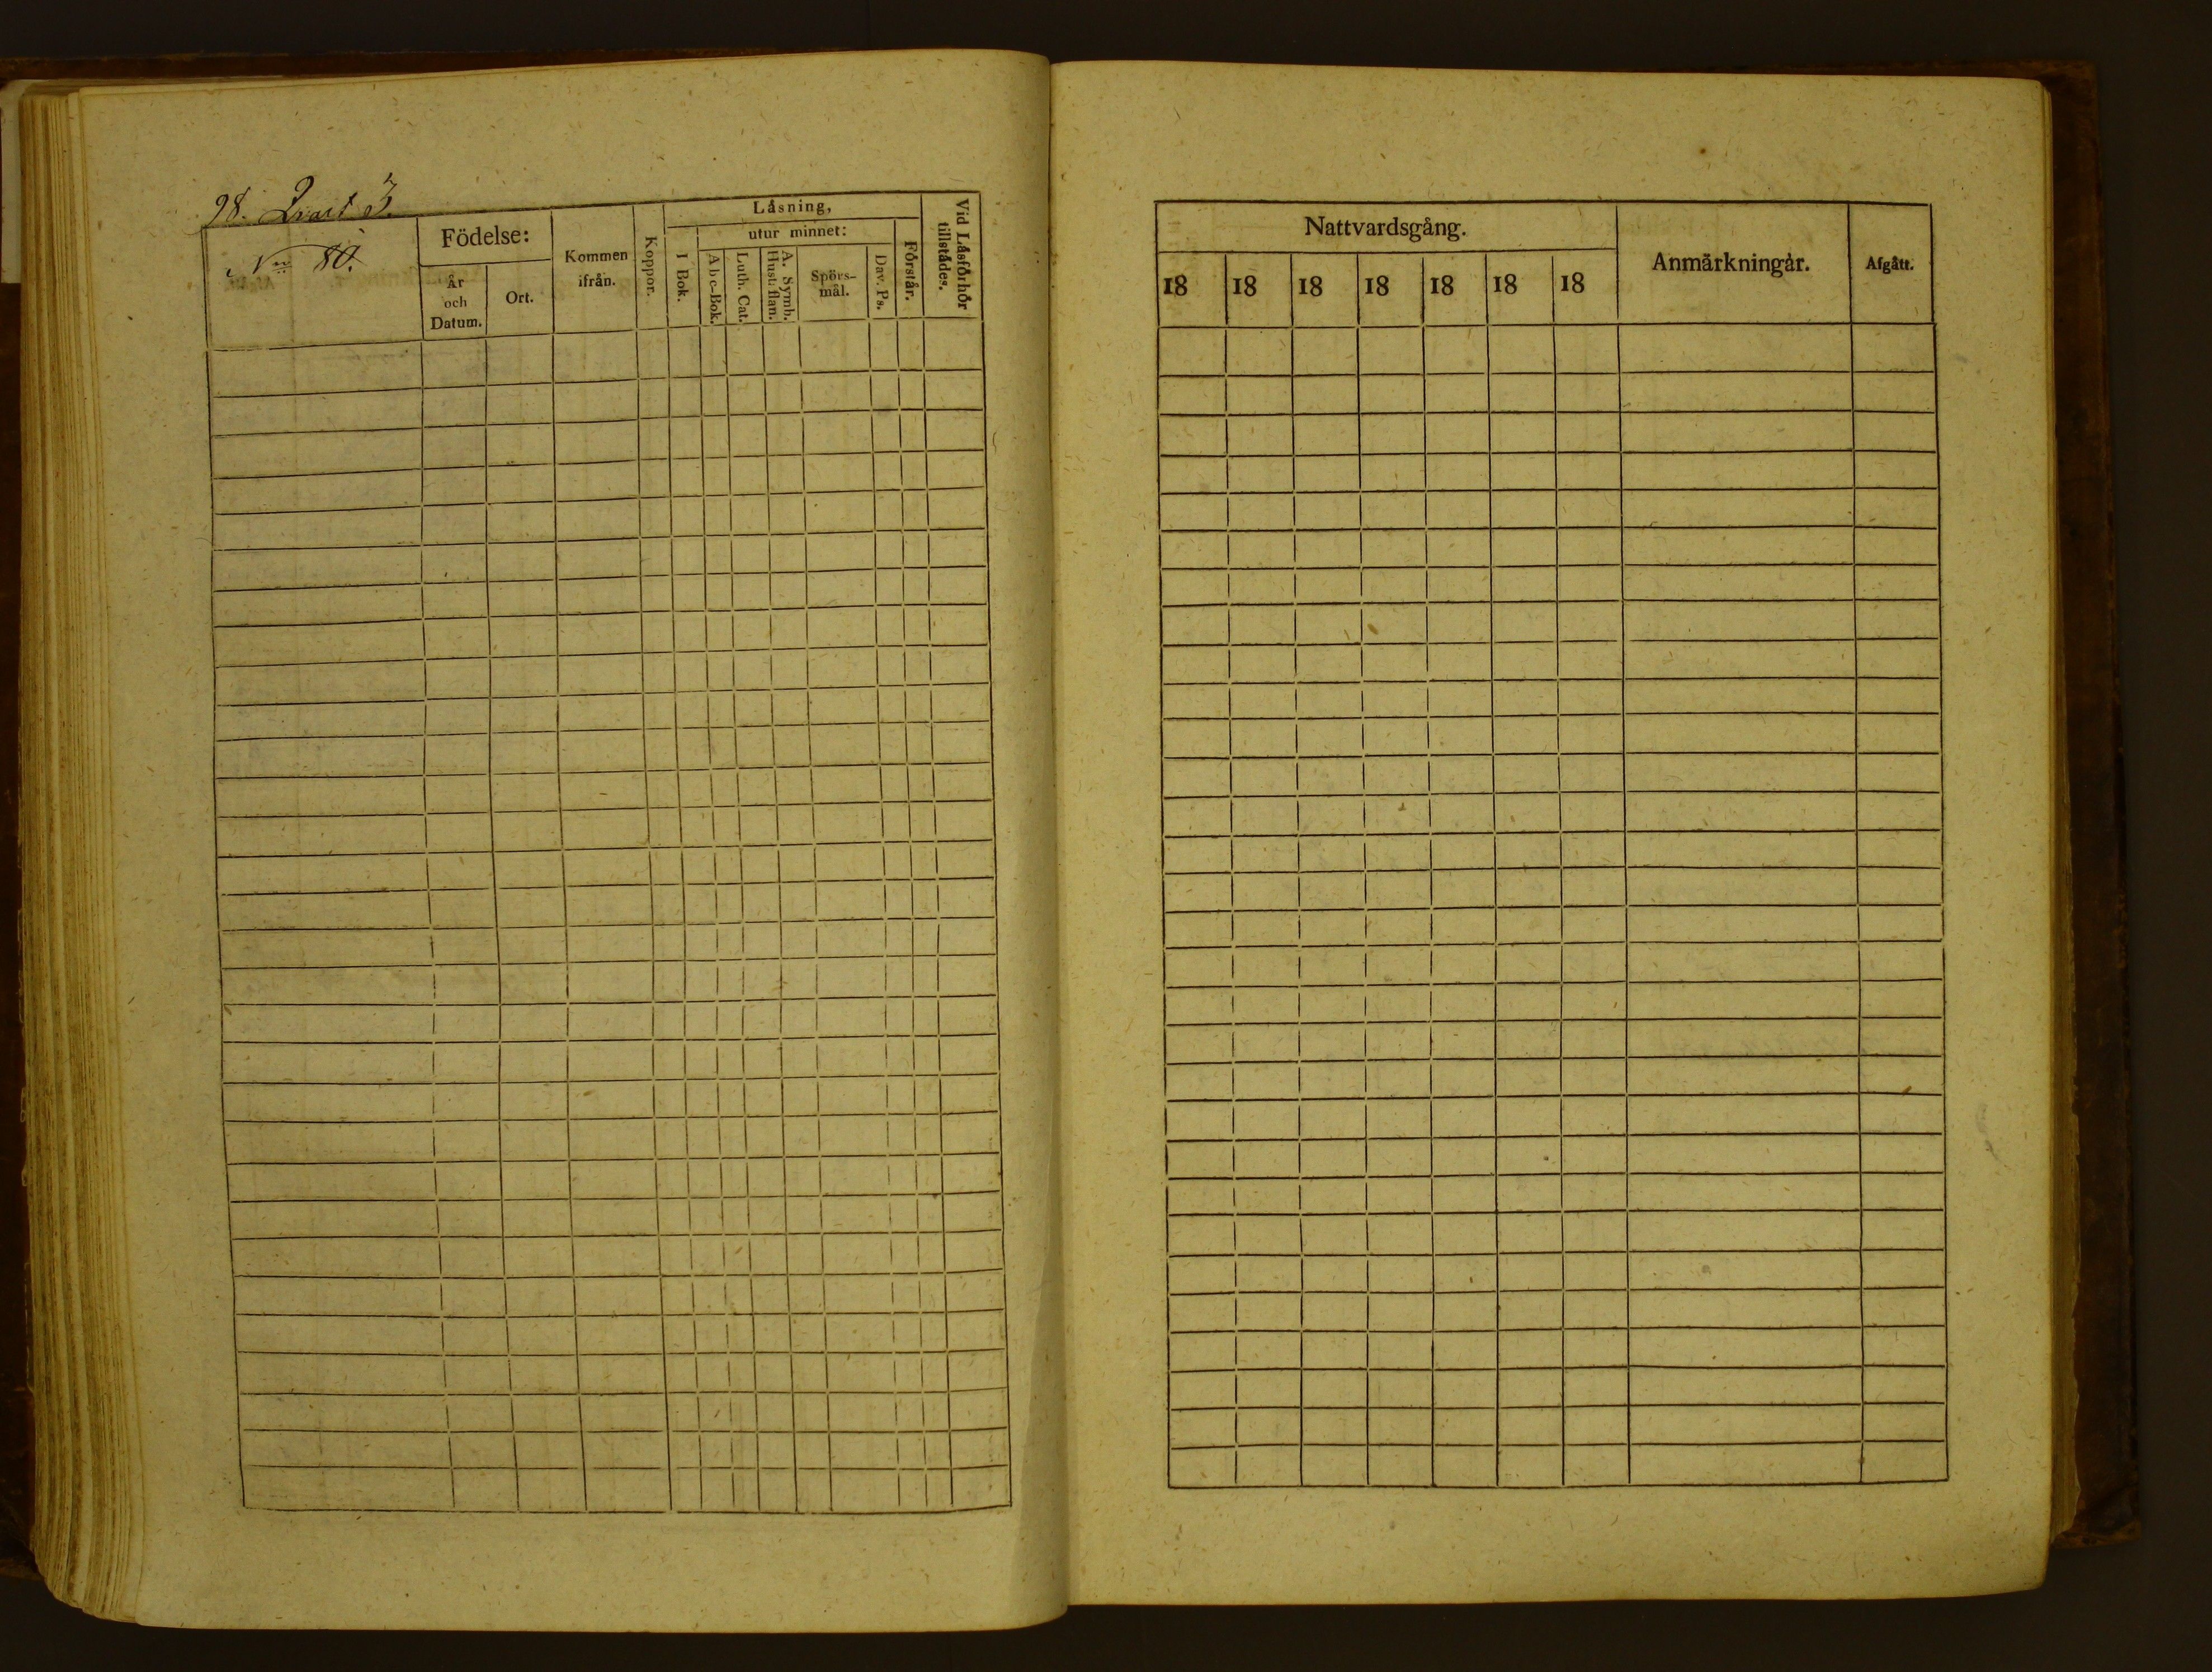 98. Qvart 3.
N:o 80.
Födelse:
År
och
Datum.
Ort.
Kommen
ifrån.
Koppor.
Låsning,
utur minnet:
I Bok.
Abc-Bok.
Luth. Cat.
A. Symb.
Hust: flan.
Spörs-
mål.
Dav. Ps.
Förstår.
Vid Låsförhör
tillstådes.
Nattvardsgång.
18 18 18 18 18 18 18
Anmärkningar.
Afgått.